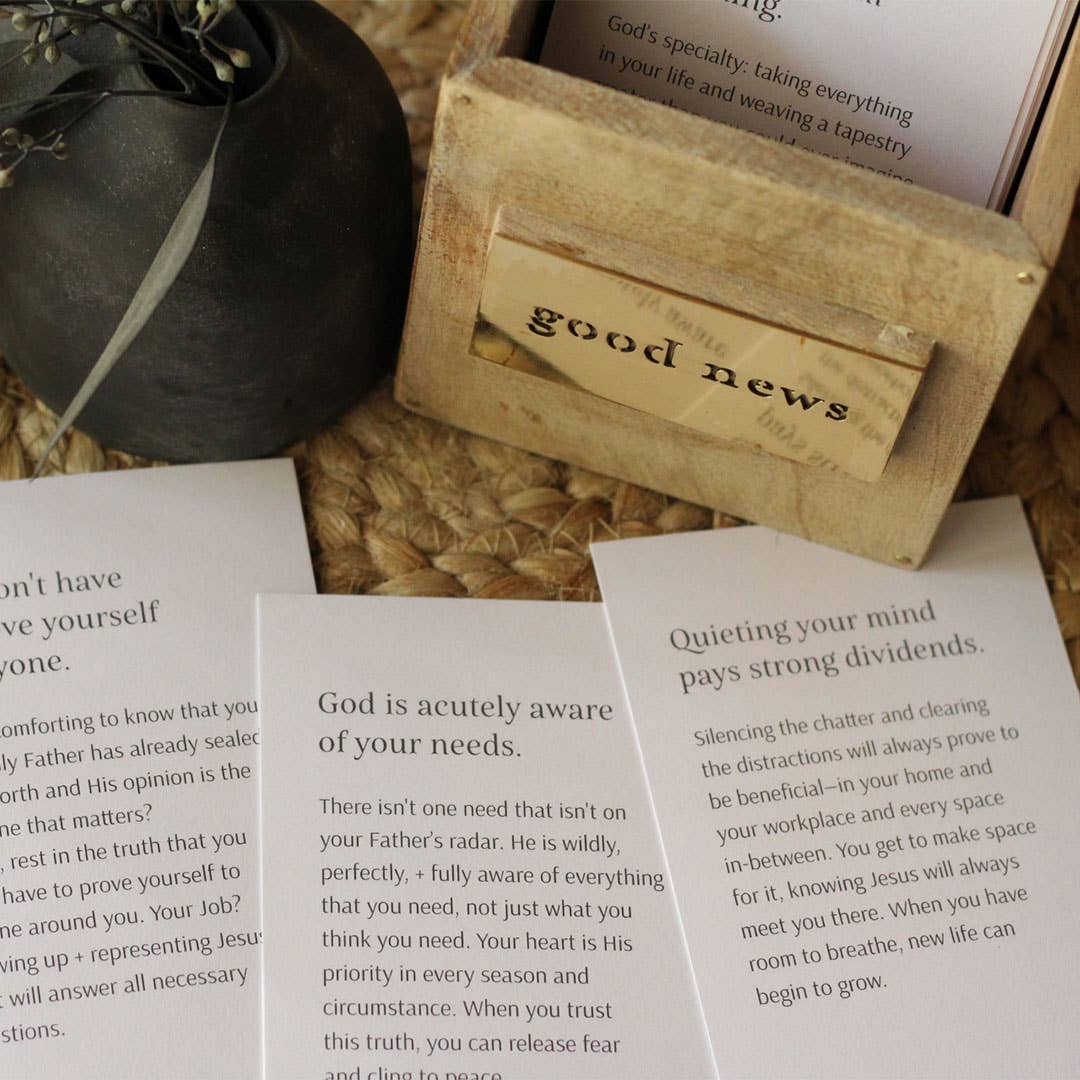 God's specialty: taking everything
in your life and weaving a tapestry
good news
on't have
ve yourself
yone.
omforting to know that you
ly Father has already sealed
orth and His opinion is the
ne that matters?
, rest in the truth that you
have to prove yourself to
ne around you. Your Job?
ving up + representing Jesus
will answer all necessary
stions.
God is acutely aware
of your needs.
There isn't one need that isn't on
your Father's radar. He is wildly,
perfectly, + fully aware of everything
that you need, not just what you
think you need. Your heart is His
priority in every season and
circumstance. When you trust
this truth, you can release fear
and cling to peace
Quieting your mind
pays strong dividends.
Silencing the chatter and clearing
the distractions will always prove to
be beneficial—in your home and
your workplace and every space
in-between. You get to make space
for it, knowing Jesus will always
meet you there. When you have
room to breathe, new life can
begin to grow.